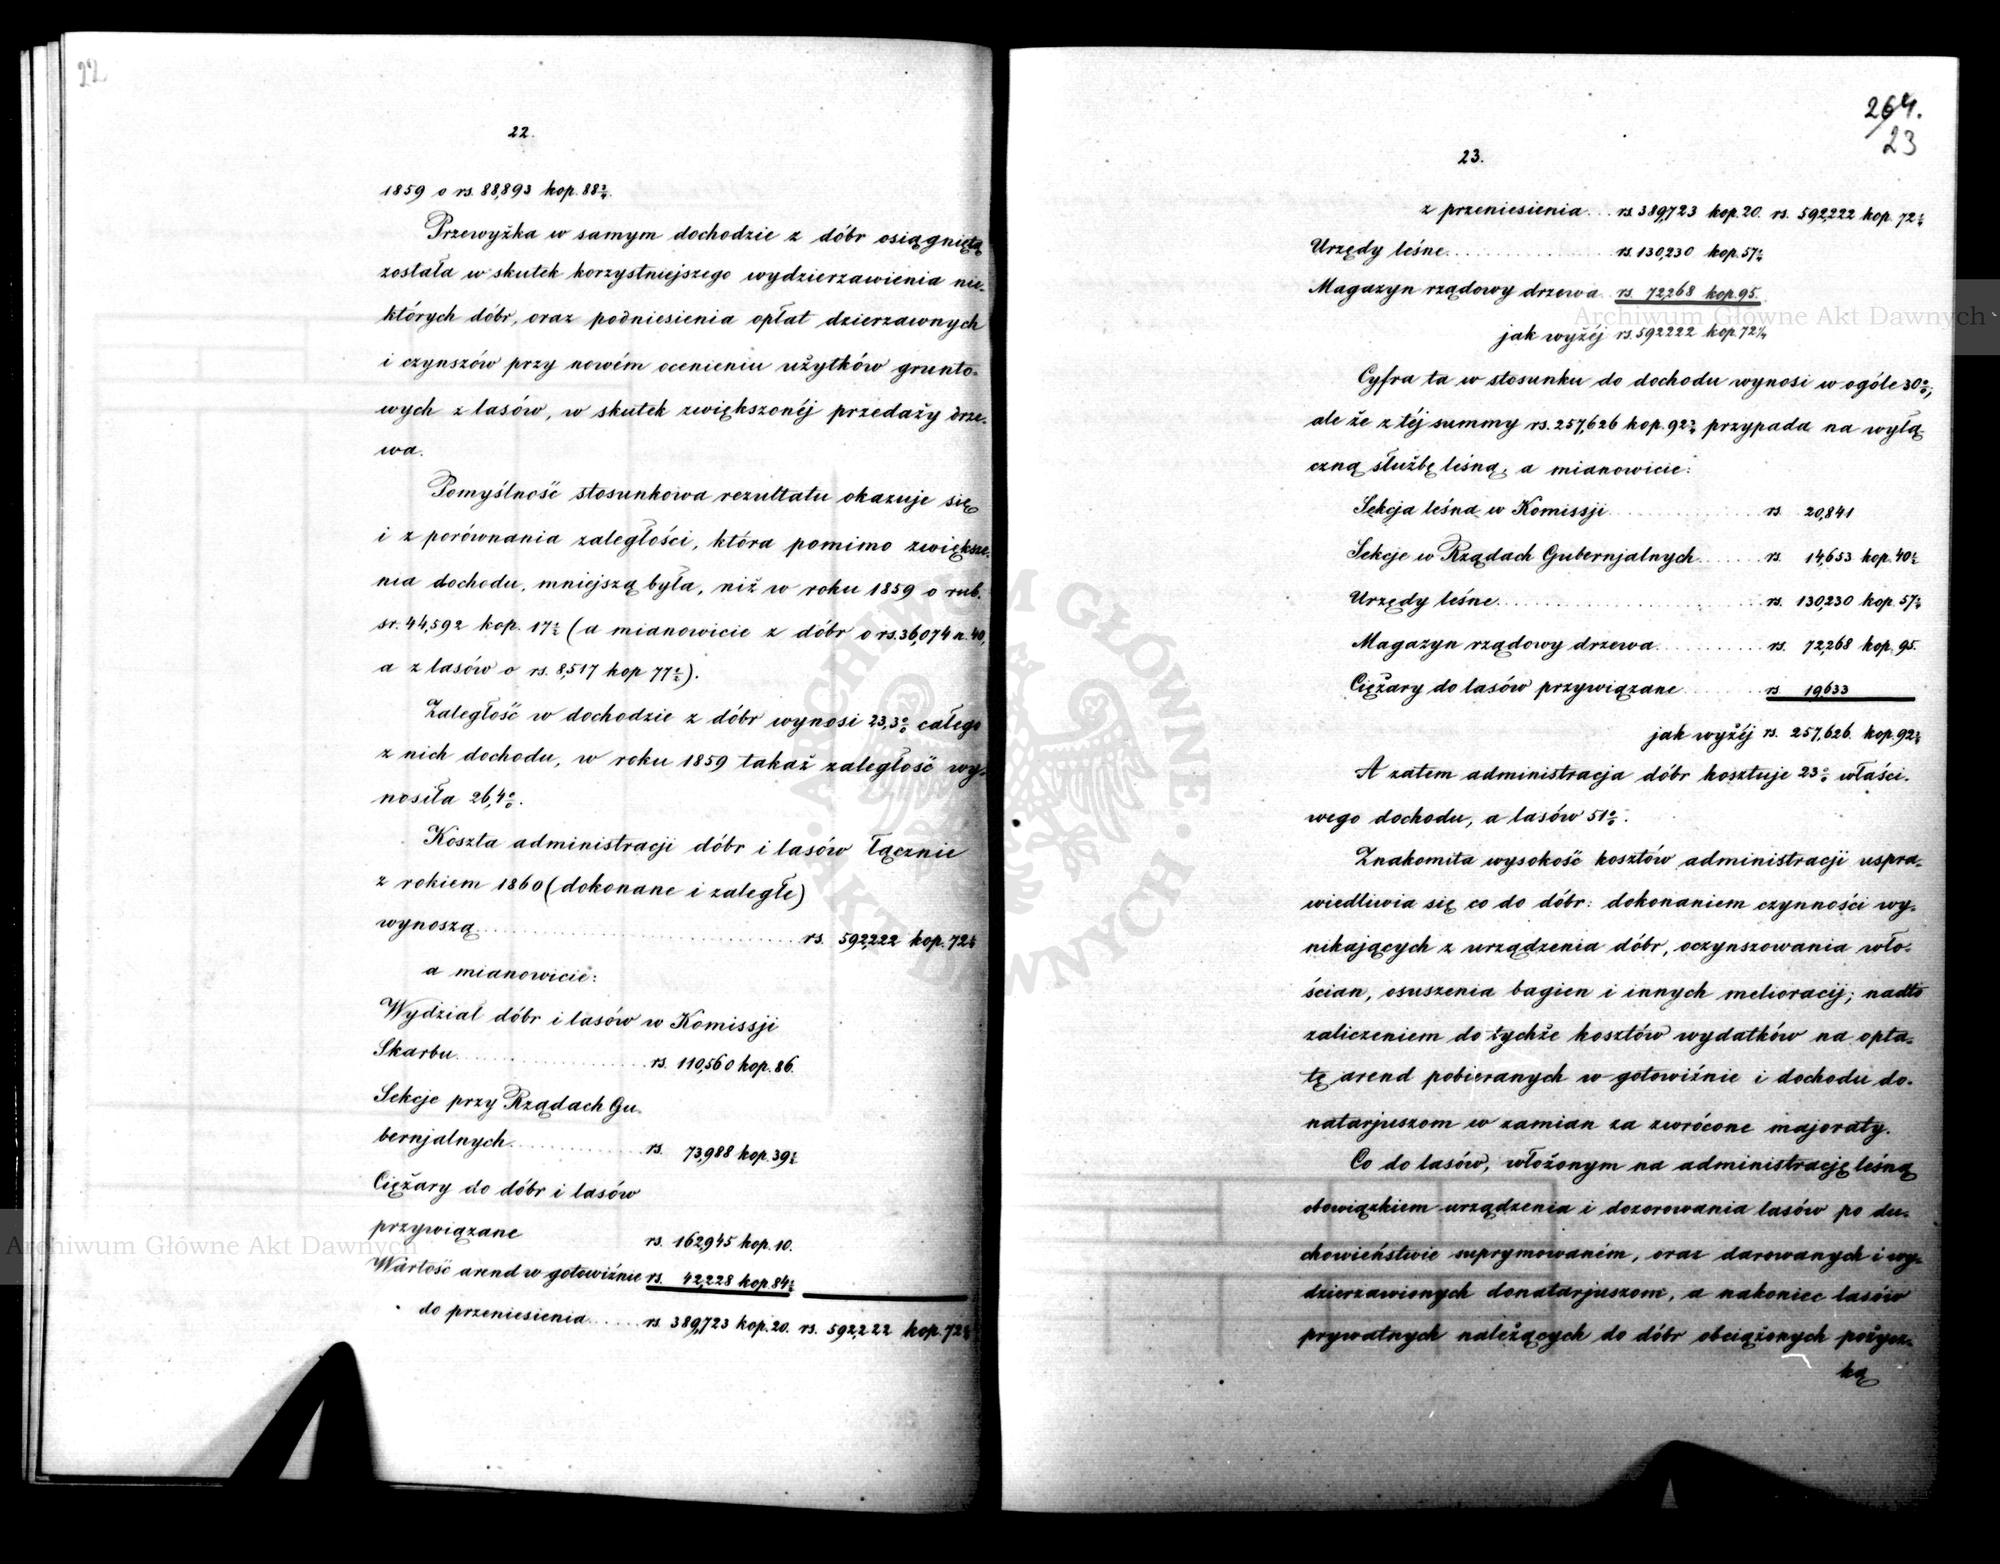 22
22.
1859 o rs. 88,893 kop. 88¾.
Przewyżka w samym dochodzie z dóbr osiągniętą
została w skutek korzystniejszego wydzierzawienia nie-
których dóbr, oraz podniesienia opłat dzierzawnych
i czynszów przy nowém ocenieniu użytków grunto-
wych z lasów, w skutek zwiększonéj przedaży drze-
wa.
Pomyślność stosunkowa rezultatu okazuje się
i z porównania zaległości, która pomimo zwiększe-
nia dochodu, mniejszą była, niż w roku 1859 o rub.
sr. 44,592 kop. 17½ (a mianowicie z dóbr o rs. 36,074 k. 40,
a z lasów o rs. 8,517 kop 77½).
Zaległość w dochodzie z dóbr wynosi 23,3% całego
z nich dochodu, w roku 1859 takaż zaległość wy-
nosiła 26,4%.
Koszta administracji dóbr i lasów łącznie
z rokiem 1860 (dokonane i zaległe)
wynoszą rs. 592,222 kop. 72¼
a mianowicie:
Wydział dóbr i lasów w Komissji
Skarbu rs. 110,560 kop. 86.
Sekcje przy Rządach Gu-
bernjalnych rs. 73,988 kop. 39½
Ciężary do dóbr i lasów
przywiązane rs. 162,945 kop. 10.
Wartość arend w gotowiźnie rs. 42,228 kop. 84½
do przeniesienia rs. 389,723 kop. 20. rs. 592,222 kop. 72¼
264.
23
23.
z przeniesienia rs. 389,723 kop. 20. rs. 592,222 kop. 72¼
Urzędy leśne rs. 130,230 kop. 57¼
Magazyn rządowy drzewa rs. 72,268 kop. 95.
jak wyżéj rs. 592,222 kop. 72¼
Cyfra ta w stosunku do dochodu wynosi w ogóle 30%;
ale że z téj summy rs. 257,626 kop. 92¾ przypada na wyłą-
czną służbę leśną, a mianowicie:
Sekcja leśna w Komissji rs. 20,841
Sekcje w Rządach Gubernjalnych rs. 14,653 kop. 40½
Urzędy leśne rs. 130,230 kop. 57¼
Magazyn rządowy drzewa rs. 72,268 kop. 95.
Ciężary do lasów przywiązane rs 19,633
jak wyżéj rs. 257,626. kop. 92¾
A zatem administracja dóbr kosztuje 23% właści-
wego dochodu, a lasów 51%.
Znakomita wysokość kosztów administracji uspra-
wiedliwia się co do dóbr: dokonaniem czynności wy-
nikających z urządzenia dóbr, oczynszowania wło-
ścian, osuszenia bagien i innych melioracij; nadto
zaliczeniem do tychże kosztów wydatków na opła-
tę arend pobieranych w gotowiźnie i dochodu do-
natarjuszom w zamian za zwrócone majoraty.
Co do lasów, włożonym na administrację leśną
obowiązkiem urządzenia i dozorowania lasów po du-
chowieństwie suprymowaném, oraz darowanych i wy-
dzierzawionych donatarjuszom, a nakoniec lasów
prywatnych należących do dóbr obciążonych pożycz-
ką
Archiwum Główne Akt Dawnych
Archiwum Główne Akt Dawnych
ARCHIWUM GŁÓWNE AKT DAWNYCH